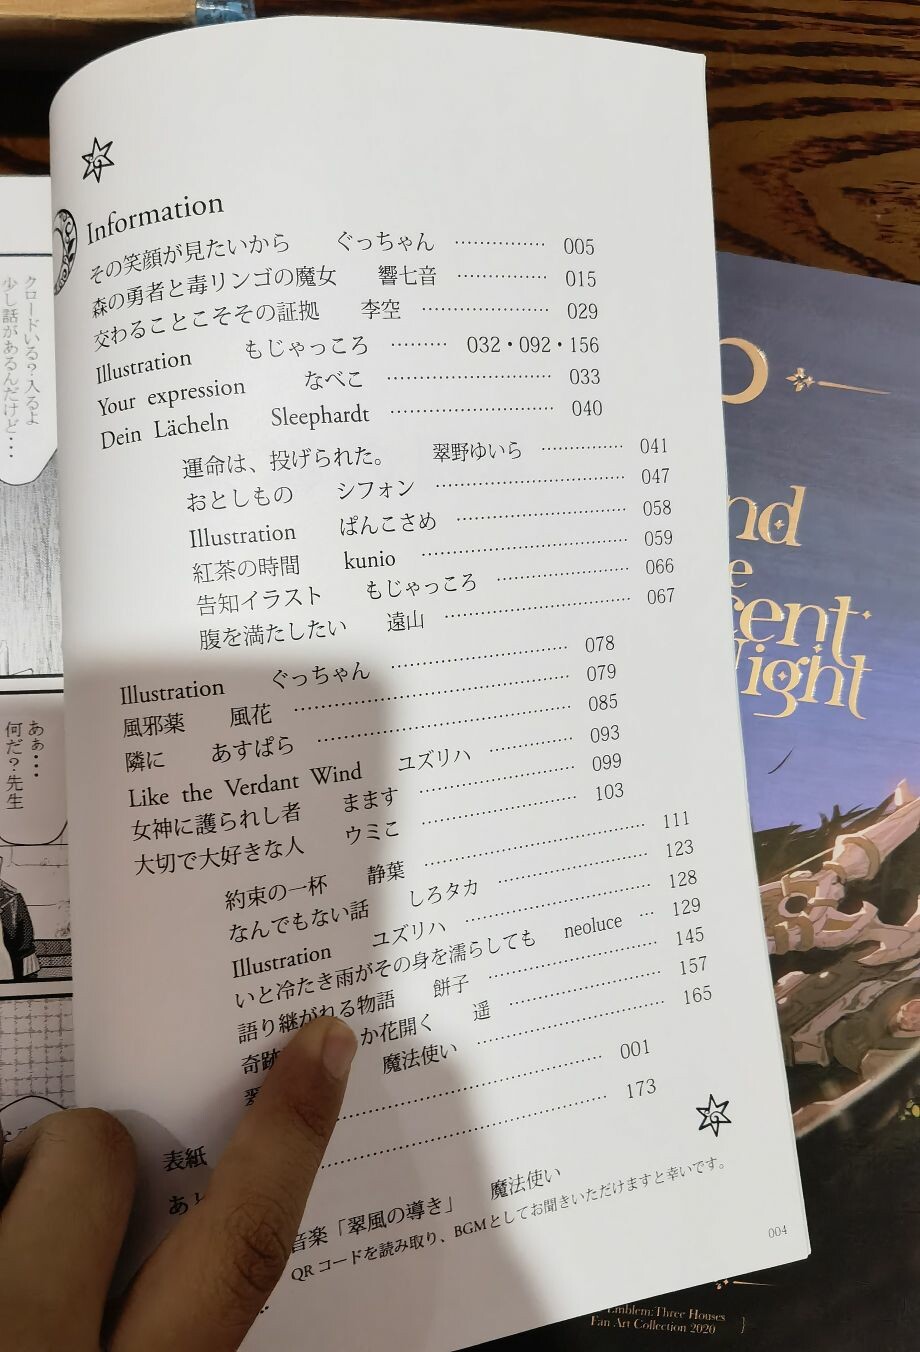 Information
その笑顔が見たいから ぐっちゃん ……………… 005
森の勇者と毒リンゴの魔女 響七音 ……………… 015
交わることこそその証拠 李空 ……………… 029
Illustration もじゃっころ ……… 032・092・156
Your expression なべこ ……………… 033
Dein Lächeln Sleephardt ……………… 040
運命は、投げられた。 翠野ゆいら ……………… 041
おとしもの シフォン ……………… 047
Illustration ぱんこさめ ……………… 058
紅茶の時間 kunio ……………… 059
告知イラスト もじゃっころ ……………… 066
腹を満たしたい 遠山 ……………… 067
Illustration ぐっちゃん ……………… 078
風邪薬 風花 ……………… 079
隣に あすぱら ……………… 085
Like the Verdant Wind ユズリハ ……… 093
女神に護られし者 まます ……………… 099
大切で大好きな人 ウミこ ……………… 103
約束の一杯 静葉 ……………… 111
なんでもない話 しろタカ ……………… 123
Illustration ユズリハ ……………… 128
いと冷たき雨がその身を濡らしても neoluce … 129
語り継がれる物語 餅子 ……………… 145
奇跡 か花開く 遥 ……………… 157
魔法使い ……………… 165
表紙 ……………… 001
あと ……………… 173
音楽「翠風の導き」 魔法使い
QRコードを読み取り、BGMとしてお聞きいただけますと幸いです。
004
クロードいる？入るよ
少し話があるんだけど・・・
あぁ・・・
何だ？先生
nd
e
cent
light
Emblem:Three Houses
Fan Art Collection 2020